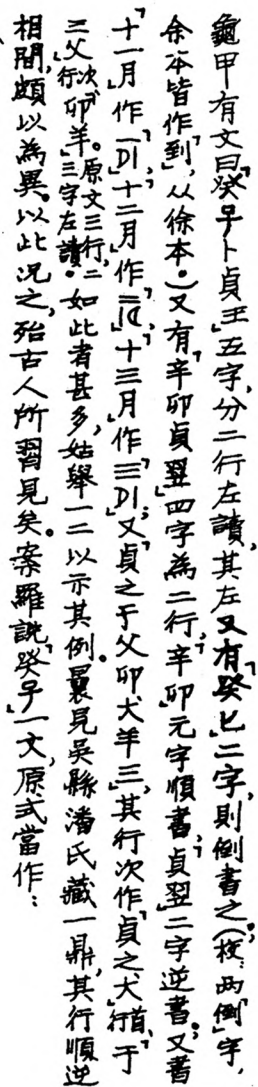 龜甲有文曰「癸子卜貞王」五字,分二行左讀,其左又有「癸匕」二字,則倒書之(校:兩「倒」字,
余本皆作「到」,从徐本。)又有「辛卯貞翌」四字為二行,「辛卯」元字順書,「貞翌」二字逆書。又書
「十一月」作「一D|」,「十二月」作「二|D」,「十三月」作「三D|」;又「貞之于父卯犬羊三」,其行次作「貞之犬」首行,「于
父」次行「卯羊。三」原文三行,二三字左讀。如此者甚多,姑舉一二以示其例。曩見吳縣潘氏藏一鼎,其行順逆
相間,頗以為異。以此況之,殆古人所習見矣。案羅說「癸子」一文,原式當作: